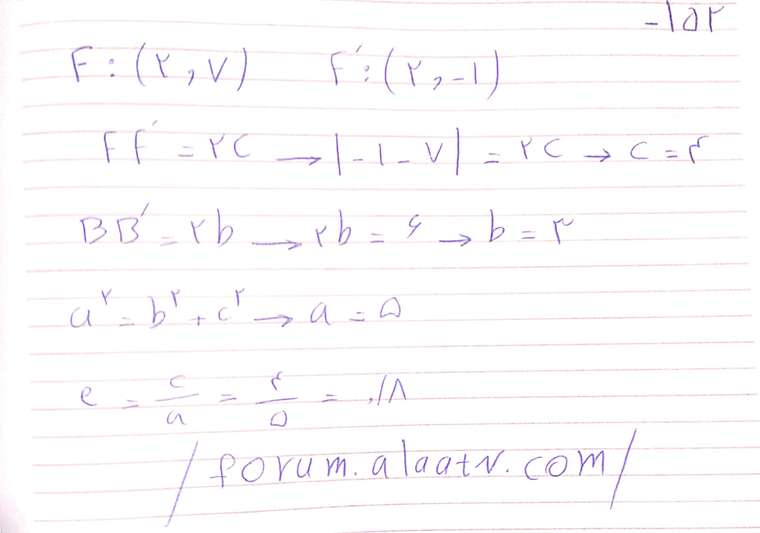 -۱۵۲
F : (۲ , ۷) F′ : (۲ , -۱)
FF′ = ۲c → |-۱-۷| = ۲c → c = ۴
BB′ = ۲b → ۲b = ۶ → b = ۳
a^۲ = b^۲ + c^۲ → a = ۵
e = c/a = ۴/۵ = ۰/۸
/forum.alaatv.com/